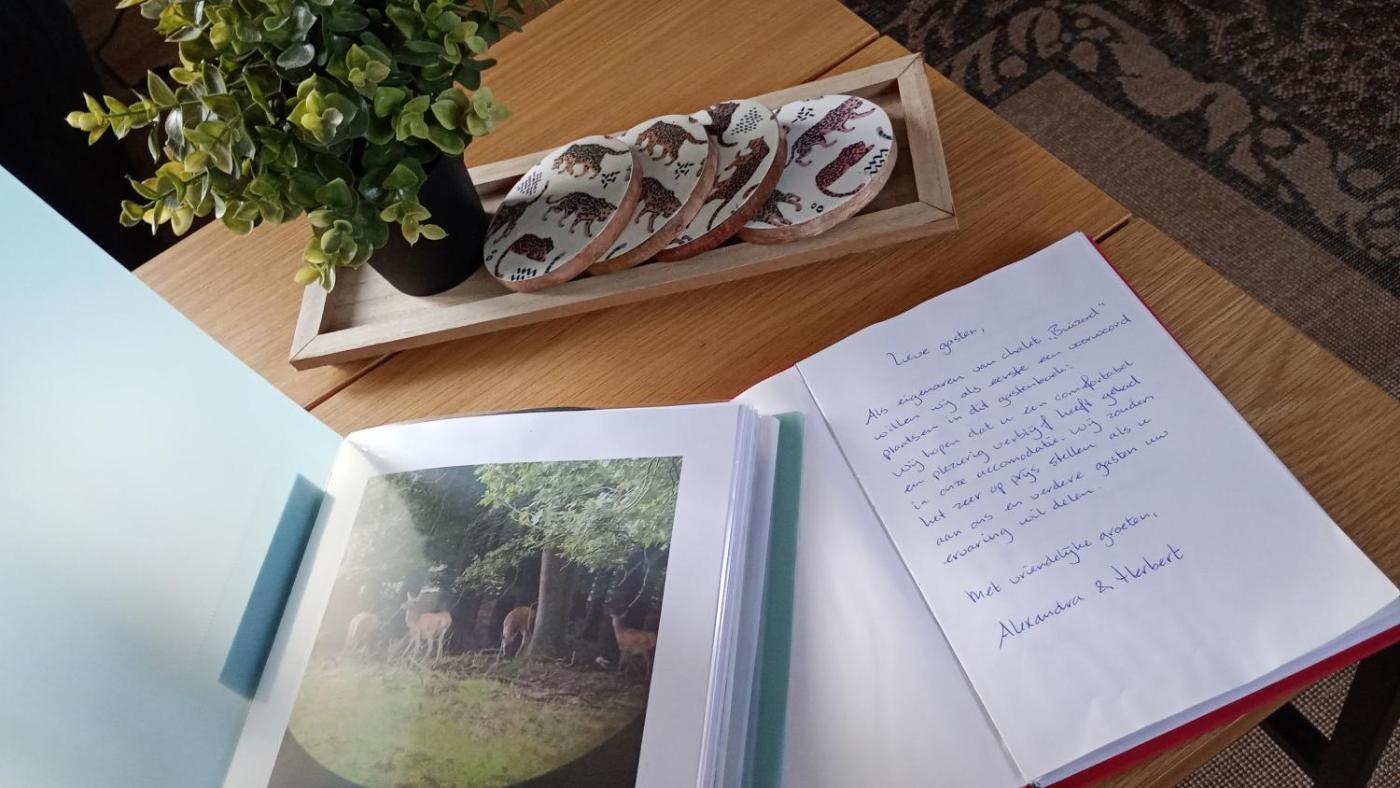 Lieve gasten,
Als eigenaren van chalet „Buizerd"
willen wij als eerste een voorwoord
plaatsen in dit gastenboek:
Wij hopen dat u een comfortabel
en plezierig verblijf heeft gehad
in onze accomodatie. Wij zouden
het zeer op prijs stellen als u
aan ons en verdere gasten uw
ervaring wil delen.
Met vriendelijke groeten,
Alexandra & Herbert